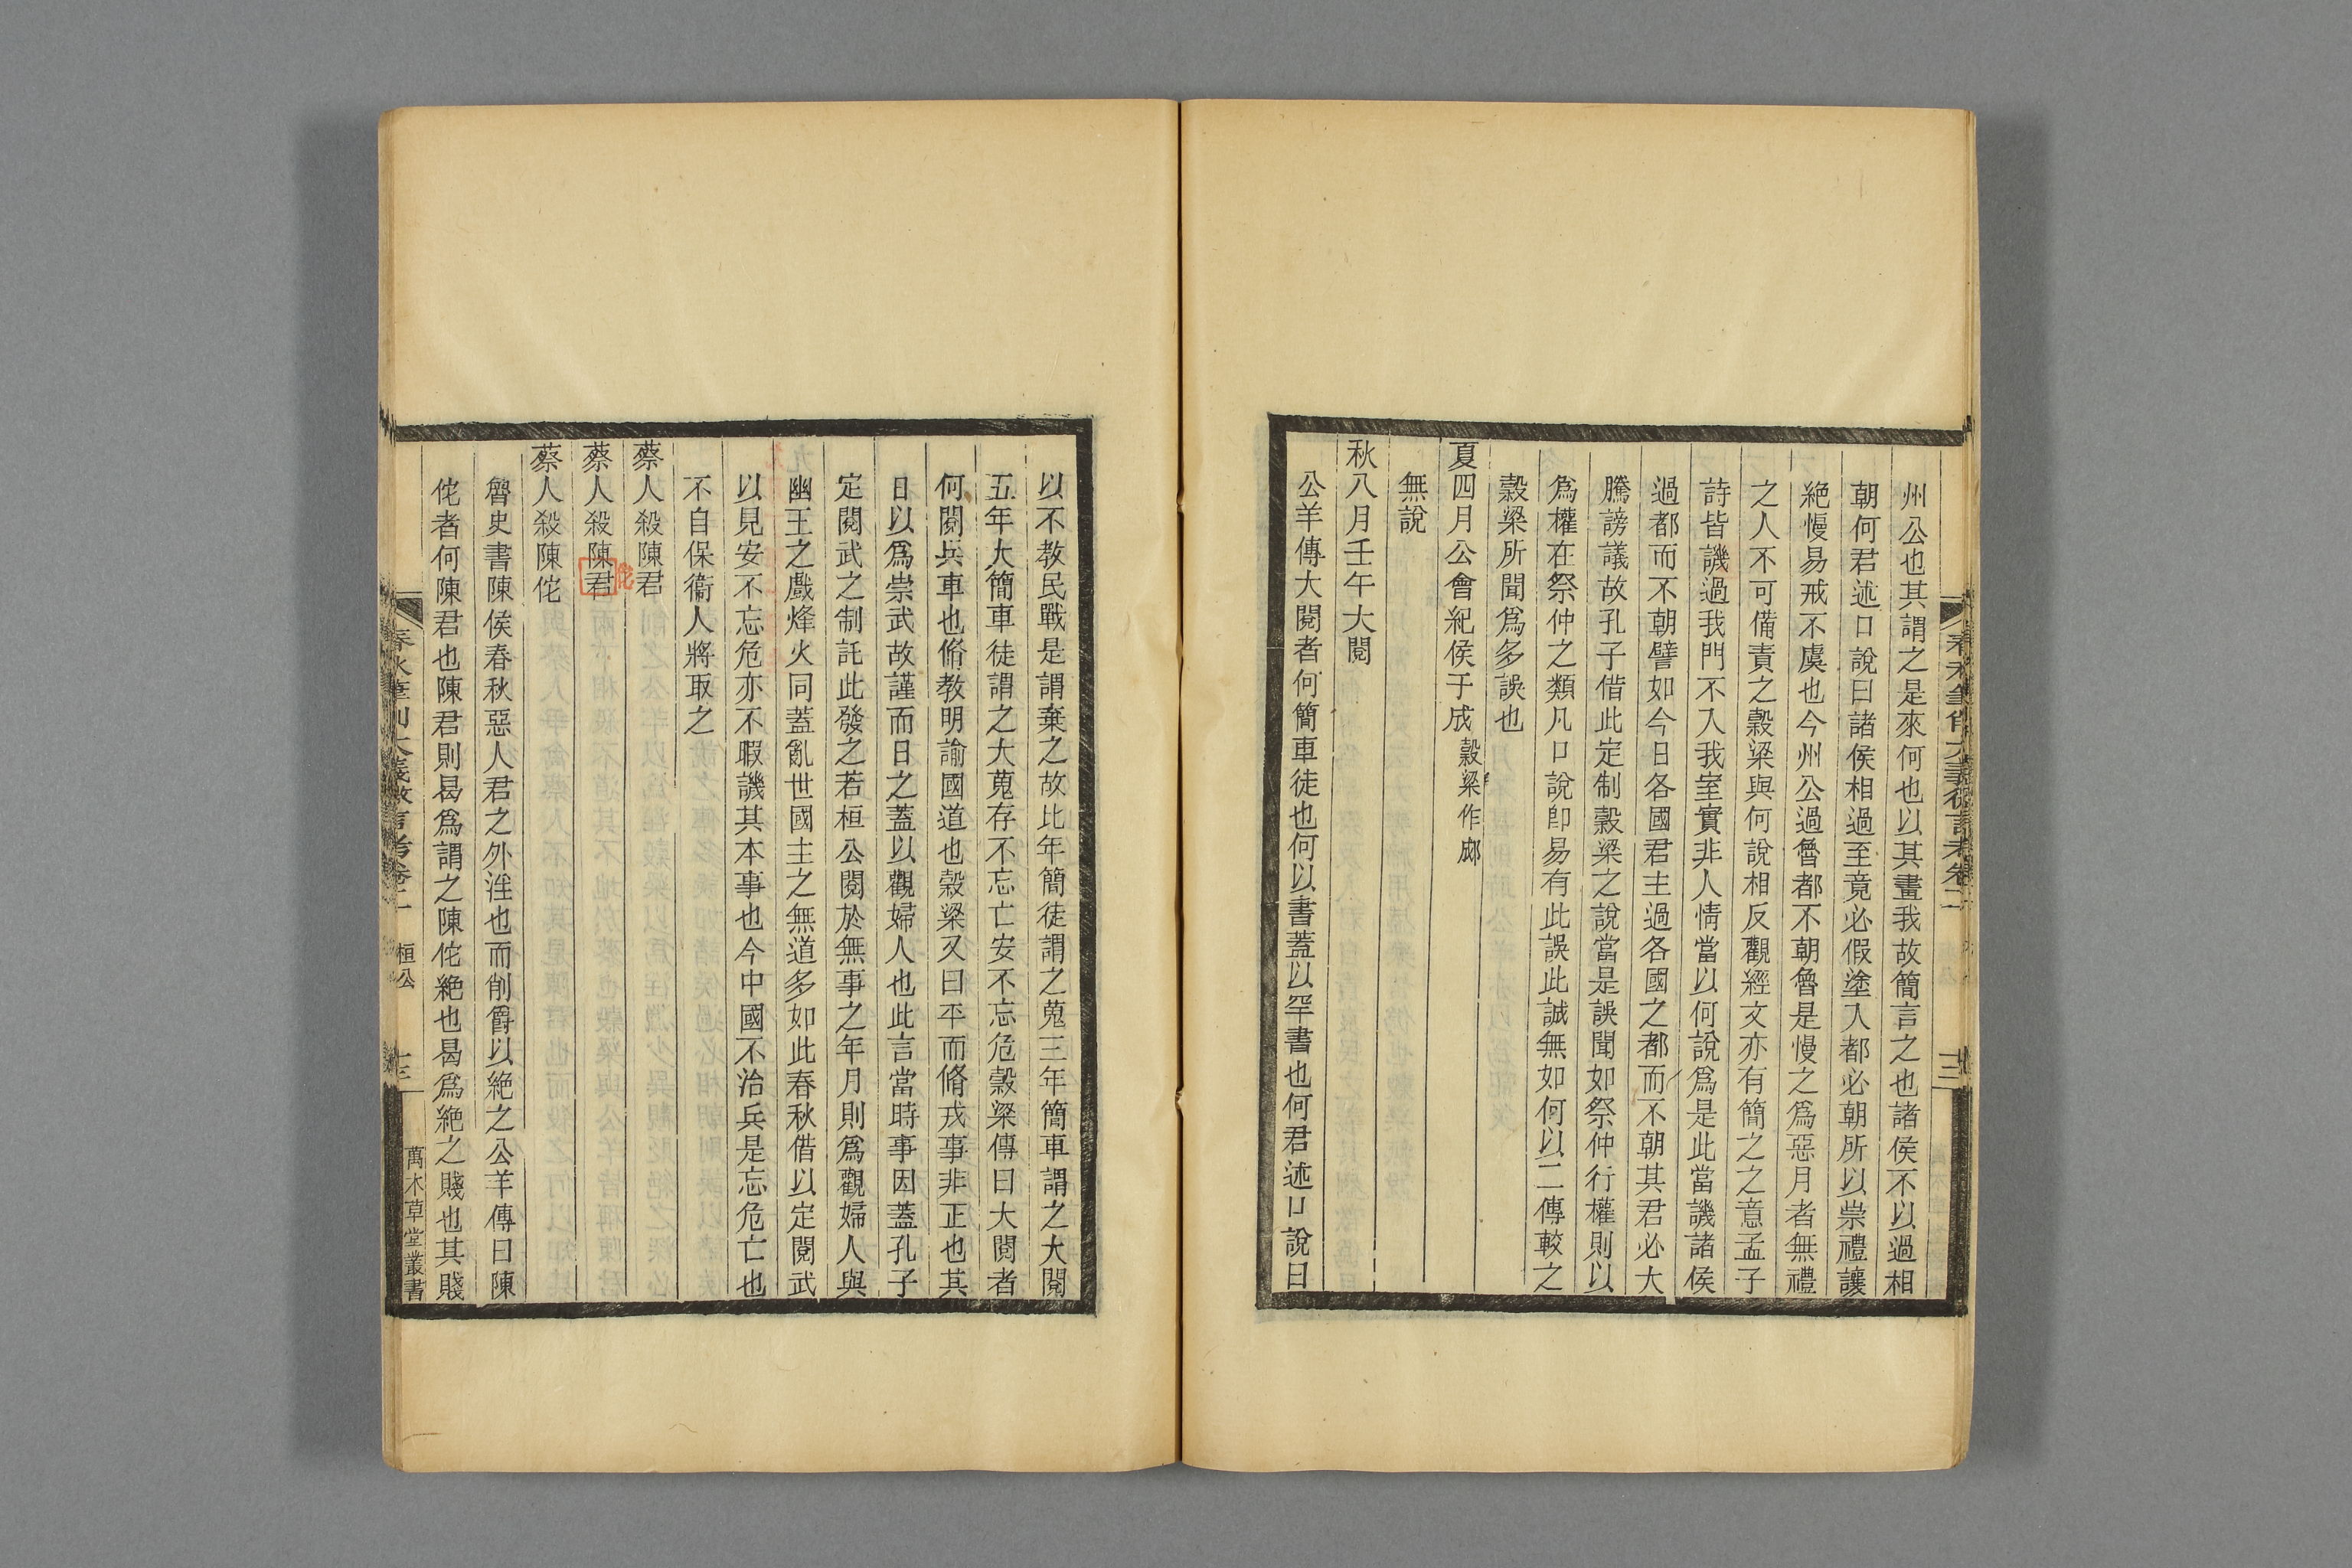 州公也其謂之是來何也以其畫我故簡言之也諸侯不以過相
朝何君述口說曰諸侯相過至竟必假塗入都必朝所以崇禮讓
絶慢易戒不虞也今州公過魯都不朝魯是慢之爲惡月者無禮
之人不可備責之穀梁與何說相反觀經文亦有簡之之意孟子
詩皆譏過我門不入我室實非人情當以何說爲是此當譏諸侯
過都而不朝譬如今日各國君主過各國之都而不朝其君必大
騰謗議故孔子借此定制穀梁之說當是誤聞如祭仲行權則以
爲權在祭仲之類凡口說卽易有此誤此誠無如何以二傳較之
穀梁所聞爲多誤也
夏四月公會紀侯于成穀梁作郕
無說
秋八月壬午大閱
公羊傳大閱者何簡車徒也何以書蓋以罕書也何君述口說曰
以不教民戰是謂棄之故比年簡徒謂之蒐三年簡車謂之大閱
五年大簡車徒謂之大蒐存不忘亡安不忘危穀梁傳曰大閱者
何閱兵車也脩教明諭國道也穀梁又曰平而脩戎事非正也其
日以爲崇武故謹而日之蓋以觀婦人也此言當時事因蓋孔子
定閱武之制託此發之若桓公閱於無事之年月則爲觀婦人與
幽王之戲烽火同蓋亂世國主之無道多如此春秋借以定閱武
以見安不忘危亦不暇譏其本事也今中國不治兵是忘危亡也
不自保衞人將取之
蔡人殺陳君
蔡人殺陳君
佗
蔡人殺陳佗
魯史書陳侯春秋惡人君之外淫也而削爵以絶之公羊傳曰陳
佗者何陳君也陳君則曷爲謂之陳佗絶也曷爲絶之賤也其賤
春秋筆削大義微言考卷二 桓公 十三 萬木草堂叢書